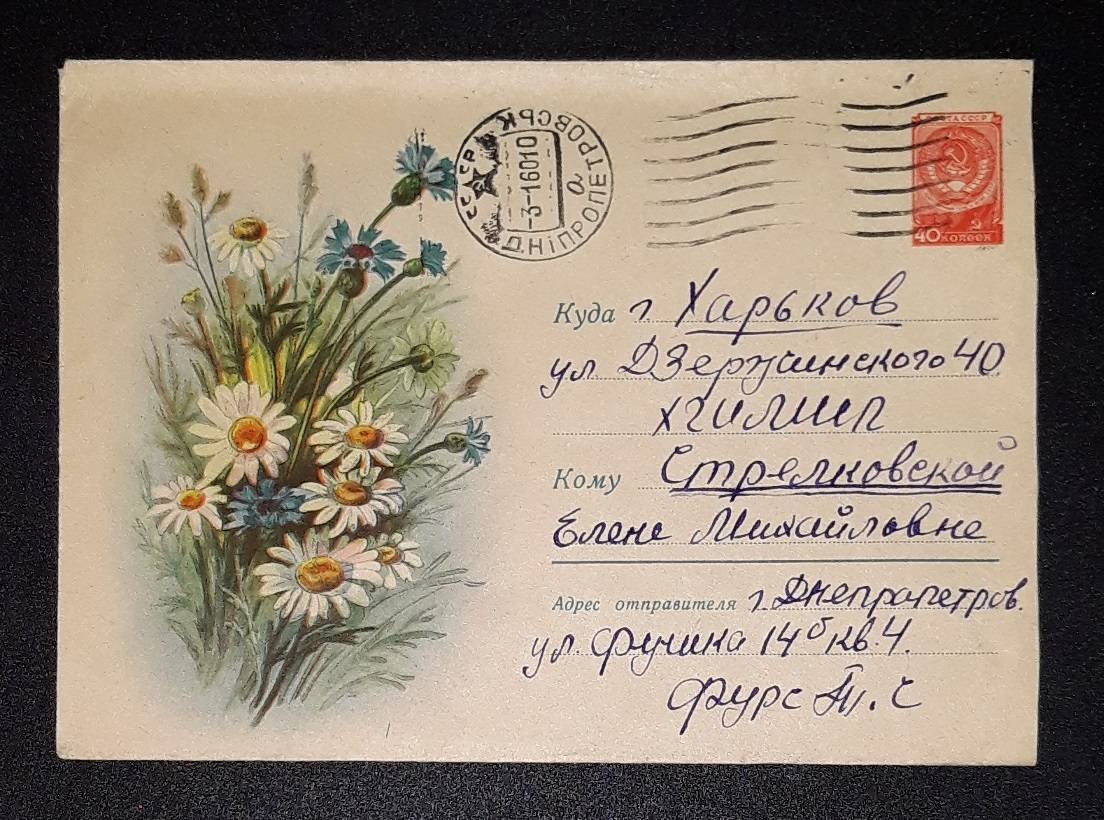 СССР
ДНІПРОПЕТРОВСЬК
-3-16010
а
ПОЧТА СССР
40 КОПЕЕК
Куда г. Харьков
ул Дзержинского 40
ХГИМИП
Кому Стрелковской
Елене Михайловне
Адрес отправителя г. Днепропетров.
ул. Фучика 14б кв. 4.
Фурс Т. С